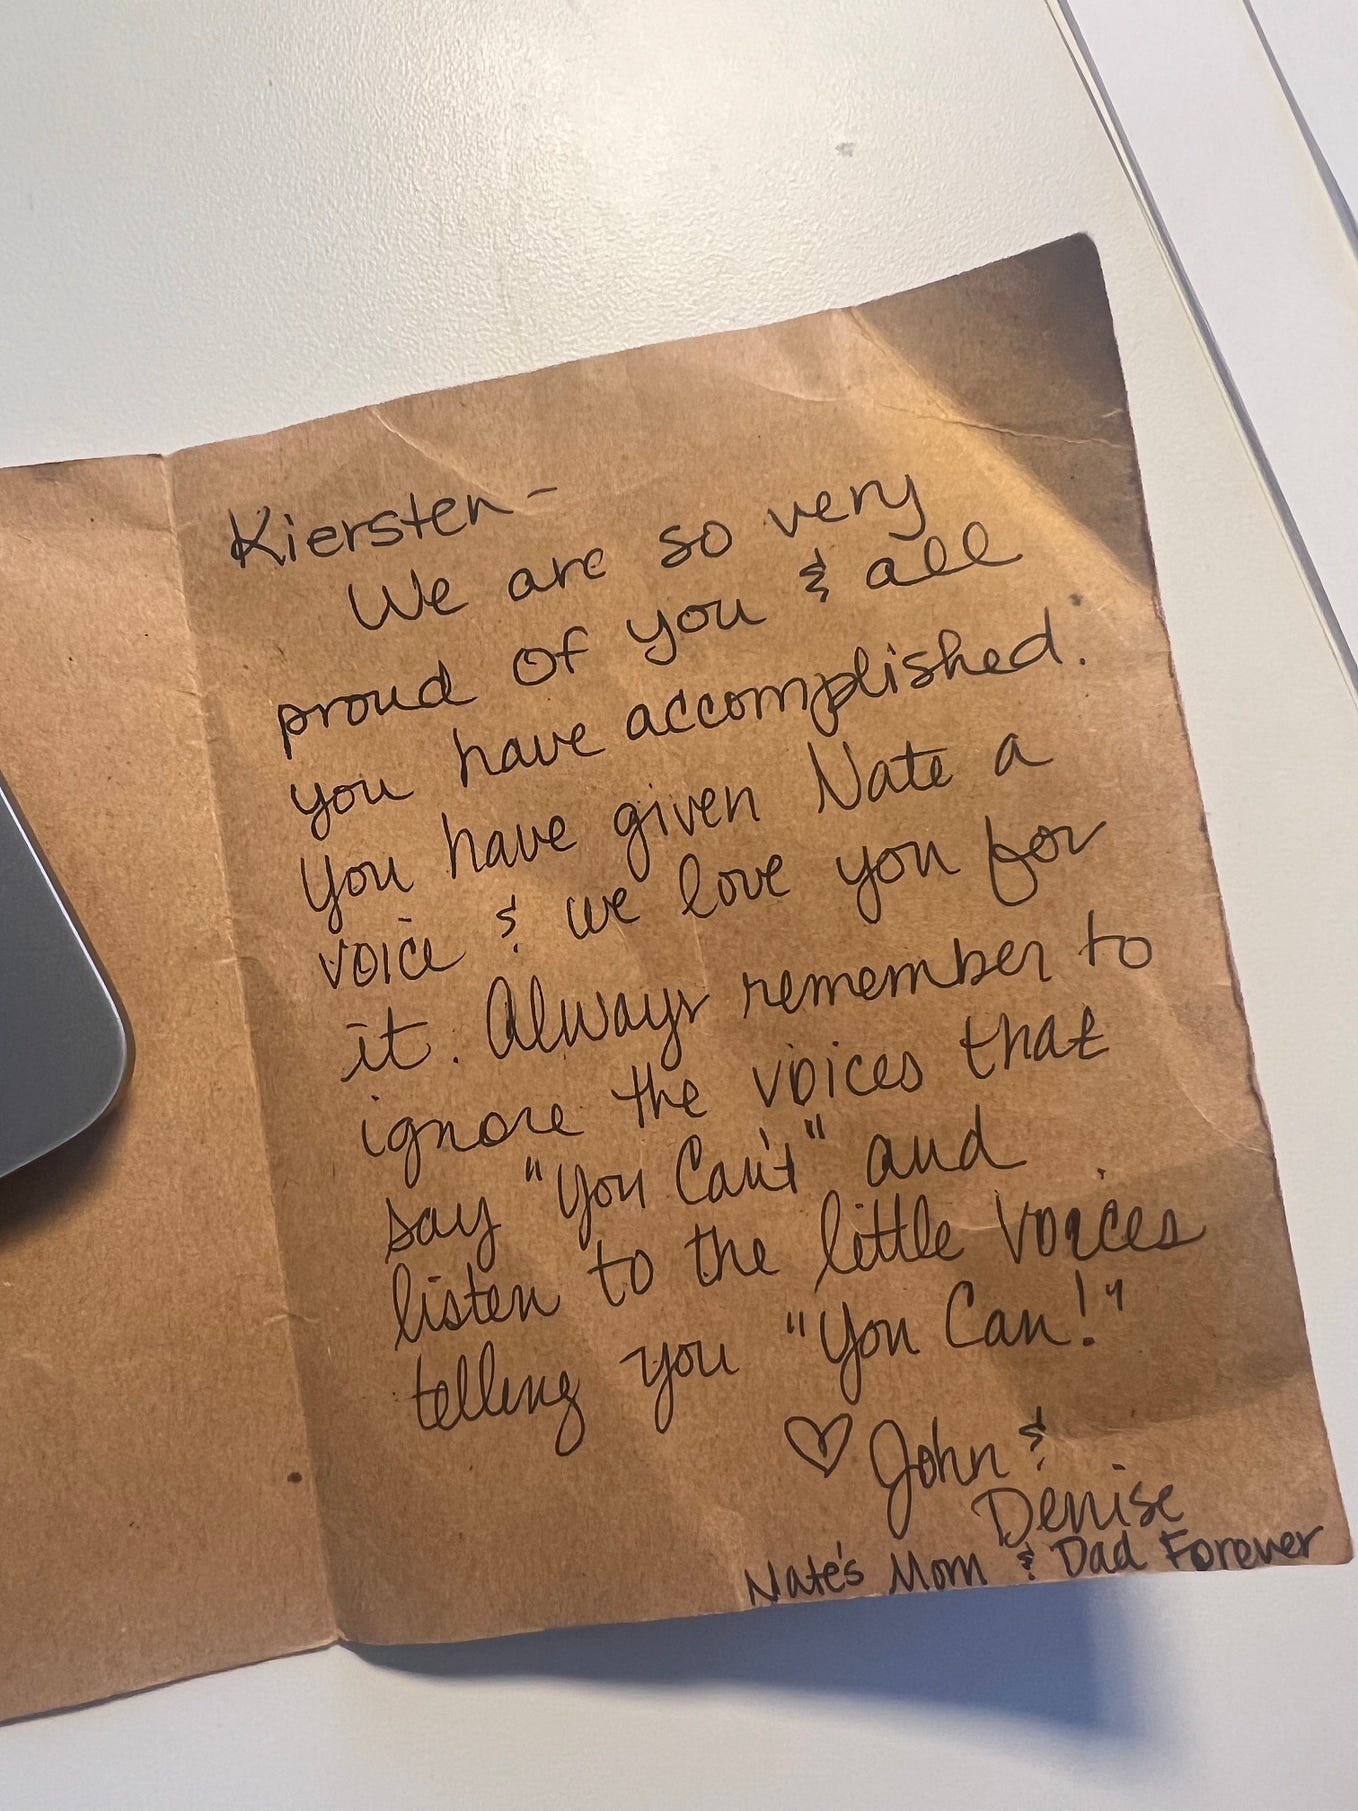 Kiersten -
We are so very
proud of you & all
you have accomplished.
You have given Nate a
voice & we love you for
it. Always remember to
ignore the voices that
say "You Can't" and
listen to the little voices
telling you "You Can!"
♡ John &
Denise
Nate's Mom & Dad Forever